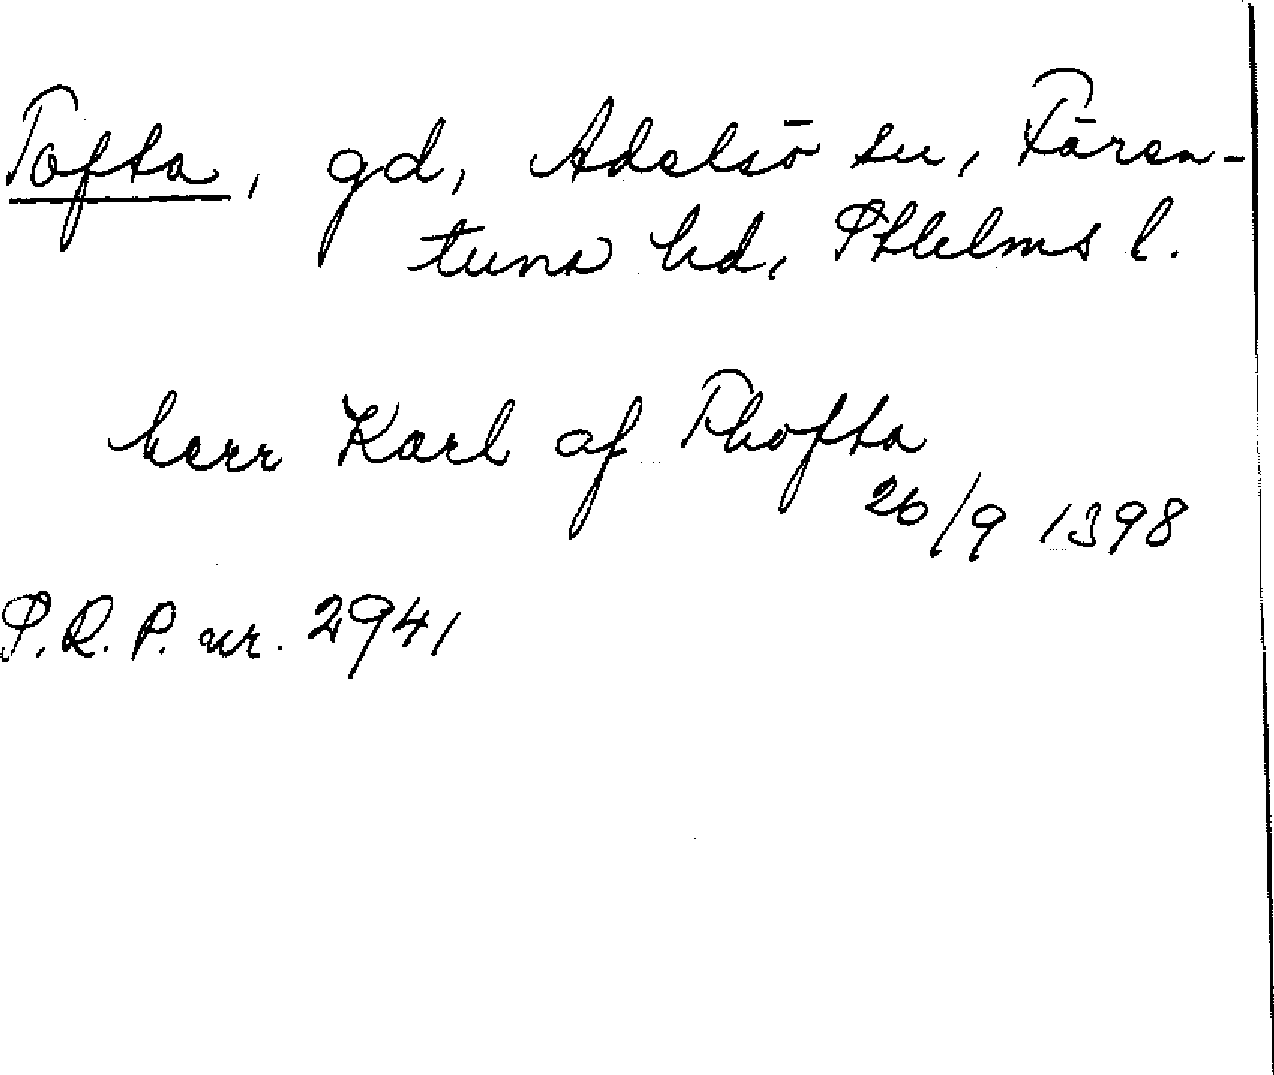 Tofta, gd, Adelsö sn, Fären-
tuna hd, Sthlms l.
herr Karl af Thofta
26/9 1398
P.R.P. nr. 2941